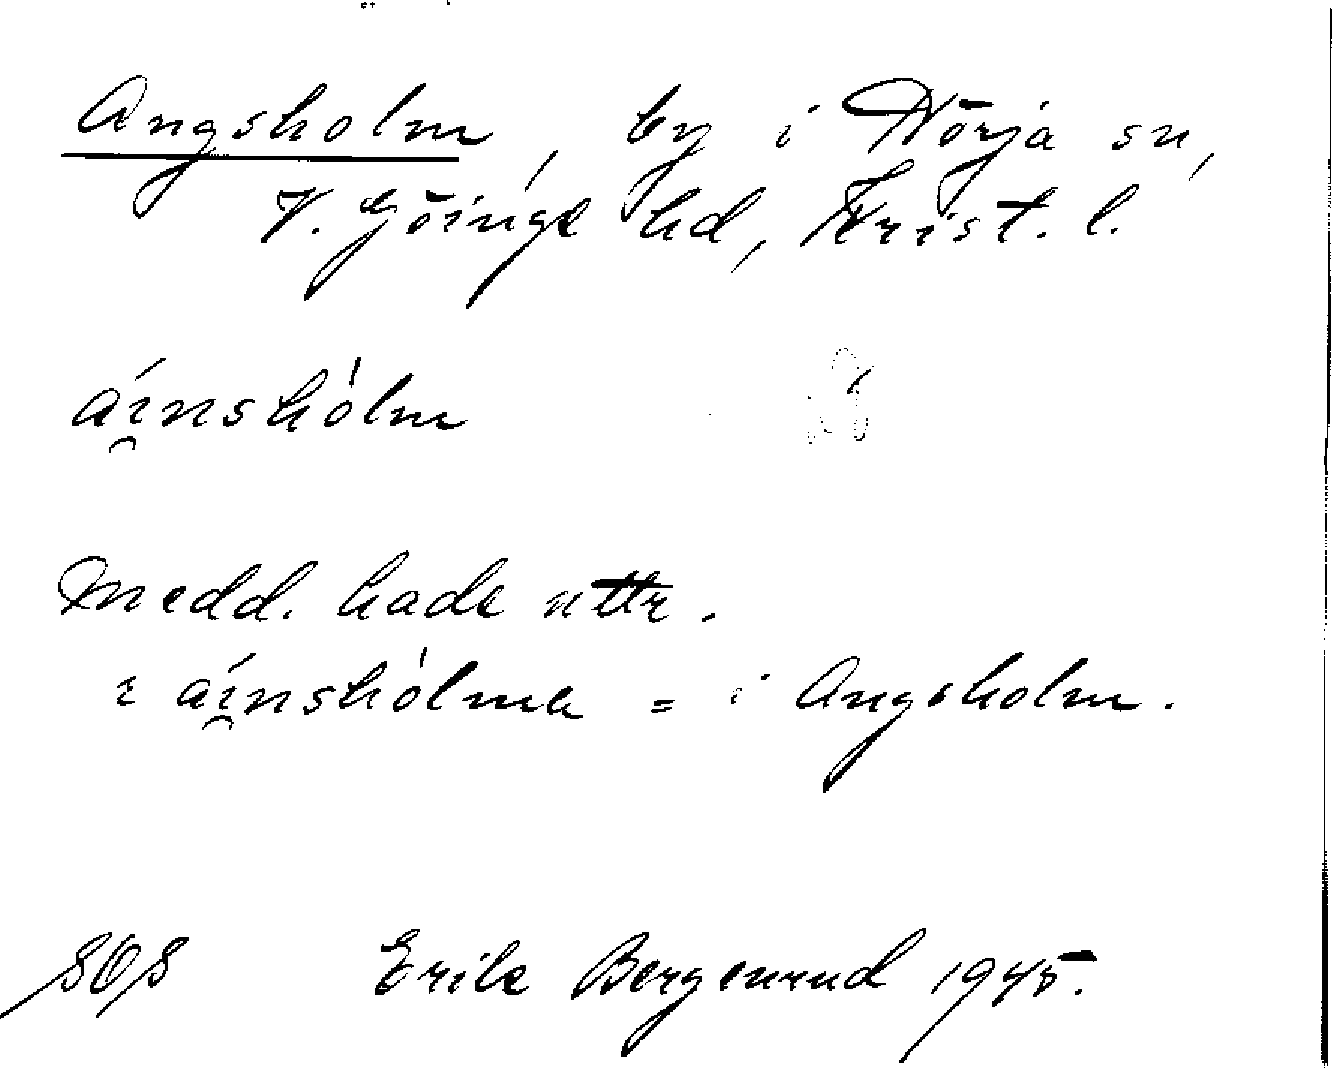 Angsholm, by i Nörja sn,
V. Göinge hd, Krist. l.
áı̯nshòlm
Medd. hade uttr.
ı áı̯nshòlma = i Angsholm.
SOS Erik Bergenrud 1945.